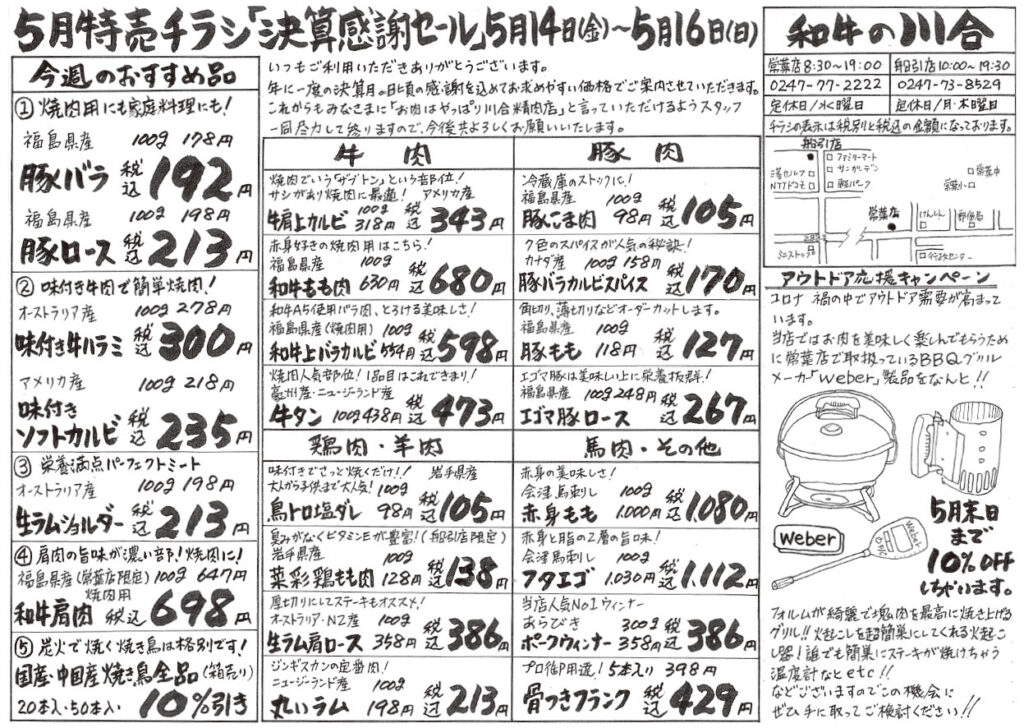 5月特売チラシ「決算感謝セール」5月14日(金)～5月16日(日)
今週のおすすめ品
① 焼肉用にも家庭料理にも!
福島県産 100g 178円
豚バラ 税込 192円
福島県産 100g 198円
豚ロース 税込 213円
② 味付き牛肉で簡単焼肉!
オーストラリア産 100g 278円
味付き牛ハラミ 税込 300円
アメリカ産 100g 218円
味付き
ソフトカルビ 税込 235円
③ 栄養満点パーフェクトミート
オーストラリア産 100g 198円
生ラムショルダー 税込 213円
④ 肩肉の旨味が濃い部!焼肉に!
福島県産(常葉店限定) 100g 647円
焼肉用
和牛肩肉 税込 698円
⑤ 炭火で焼く焼き鳥は格別です!
国産・中国産焼き鳥全品(箱売り)
20本入・50本入・ 10%引き
いつもご利用いただきありがとうございます。
年に一度の決算月。日頃の感謝を込めてお求めやすい価格でご案内させていただきます。
これからもみなさまに「お肉はやっぱり川合精肉店」と言っていただけるようスタッフ
一同尽力して参りますので、今後共よろしくお願いいたします。
牛肉
焼肉でいう「ザブトン」という部位!
サシがあり焼肉に最適! アメリカ産
牛肩上カルビ 100g 318円 税込 343円
赤身好きの焼肉用はこちら!
福島県産 100g
和牛もも肉 630円 税込 680円
和牛A5使用バラ肉、とろける美味しさ!
福島県産(焼肉用) 100g
和牛上バラカルビ 554円 税込 598円
焼肉人気部位! 1品目はこれできまり!
豪州産・ニュージーランド産
牛タン 100g 438円 税込 473円
豚肉
冷蔵庫のストックに!
福島県産 100g
豚こま肉 98円 税込 105円
7色のスパイスが人気の秘訣!
カナダ産 100g 158円
豚バラカルビスパイス 税込 170円
角切り、薄切りなどオーダーカットします。
福島県産 100g
豚もも 118円 税込 127円
エゴマ豚は美味しい上に栄養抜群!
福島県産 100g 248円
エゴマ豚ロース 税込 267円
鶏肉・羊肉
味付きでさっと焼くだけ!! 岩手県産
大人から子供まで大人気! 100g
鳥トロ塩ダレ 98円 税込 105円
臭みがなくビタミンEが豊富!(船引店限定)
岩手県産 100g
菜彩鶏もも肉 128円 税込 138円
厚切りにしてステーキもオススメ!
オーストラリア・NZ産 100g
生ラム肩ロース 358円 税込 386円
ジンギスカンの定番肉!
ニュージーランド産 100g
丸いラム 198円 税込 213円
馬肉・その他
赤身の美味しさ!
会津馬刺し 100g
赤身もも 1.000円 税込 1.080円
赤身と脂の2層の旨味!
会津馬刺し 100g
フタエゴ 1.030円 税込 1.112円
当店人気No1ウィンナー
あらびき 300g
ポークウィンナー 358円 税込 386円
プロ御用達! 5本入り 398円
骨つきフランク 税込 429円
和牛の川合
常葉店 8:30～19:00 船引店 10:00～19:30
0247-77-2222 0247-73-8529
定休日/水曜日 定休日/月・木曜日
チラシの表示は税別と税込の金額になっております。
船引店
ファミリーマート
サンガーデン
軽パーク
NTTドコモ
常葉中
常葉小
常葉店
けんしん
郵便局
ミニストップ
行政センター
アウトドア応援キャンペーン
コロナ禍の中でアウトドア需要が高まって
います。
当店ではお肉を美味しく楽しんでもらうため
に常葉店で取扱っているBBQグリル
メーカー「Weber」製品をなんと!!
weber
5月末日
まで
10%OFF
しちゃいます。
フォルムが綺麗で塊肉を最高に焼き上げる
グリル!!火起こしを超簡単にしてくれる火起こ
し器!誰でも簡単にステーキが焼けちゃう
温度計などetc!!
などございますのでこの機会に
ぜひ手に取ってご検討ください!!